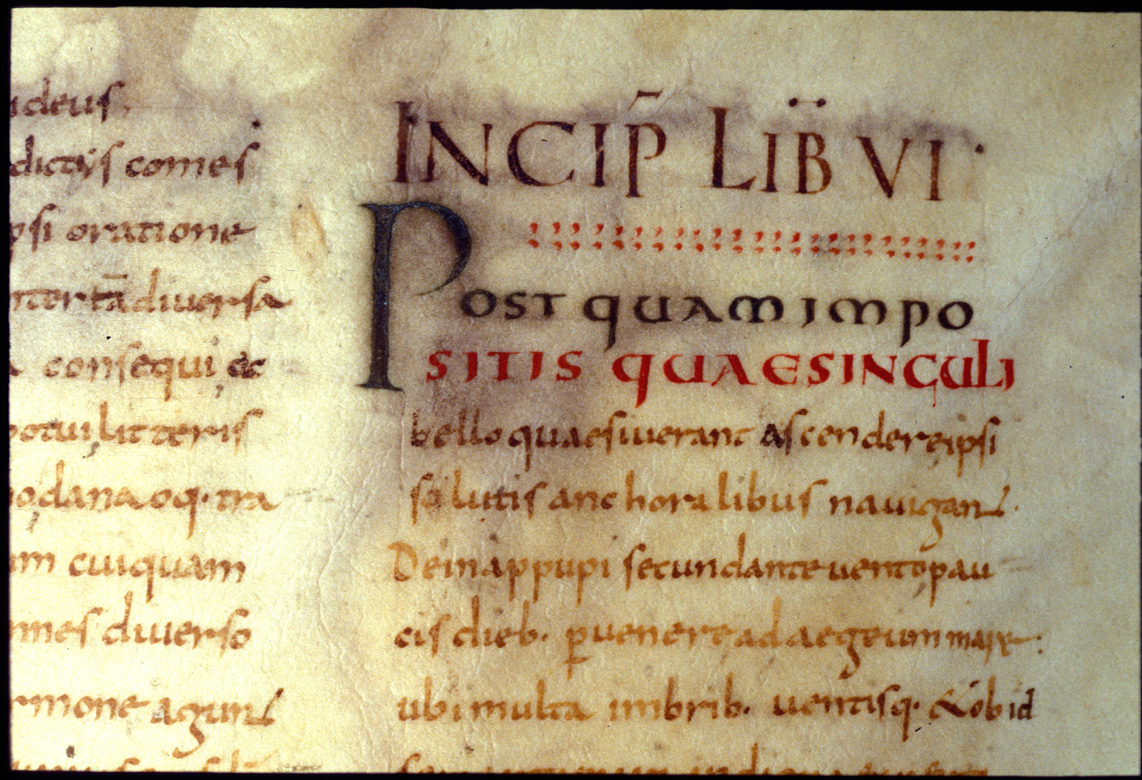 deus,
dictis comes
psi oratione
diuersa
consequi, &c
potui, litteris
cuiquam
diuerso
agunt
INCIP̄ LIB̈ VI·
POST QUAM IMPO
SITIS QUAE SINGULI
bello quaesiuerant ascendere ipsi
solutis anchoralibus nauigant.
Dein appupi secundante uento pau
cis dieb· puenere ad aegeum mare.
ubi multa imbrib· uentisq· & ob id